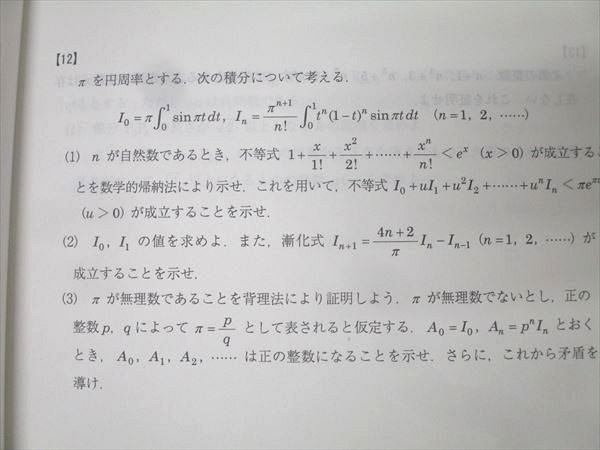 【12】
π を円周率とする．次の積分について考える．
I₀ = π∫₀¹ sin πt dt, Iₙ = πⁿ⁺¹/n! ∫₀¹ tⁿ(1−t)ⁿ sin πt dt (n=1, 2, ……)
(1) n が自然数であるとき，不等式 1 + x/1! + x²/2! + …… + xⁿ/n! < eˣ (x>0) が成立するこ
とを数学的帰納法により示せ．これを用いて，不等式 I₀+uI₁+u²I₂+……+uⁿIₙ < πe
(u>0) が成立することを示せ．
(2) I₀, I₁ の値を求めよ．また，漸化式 Iₙ₊₁ = (4n+2)/π Iₙ − Iₙ₋₁ (n=1, 2, ……) が
成立することを示せ．
(3) π が無理数であることを背理法により証明しよう．π が無理数でないとし，正の
整数 p, q によって π = p/q として表されると仮定する．A₀ = I₀, Aₙ = pⁿIₙ とおく
とき，A₀, A₁, A₂, …… は正の整数になることを示せ．さらに，これから矛盾を
導け．